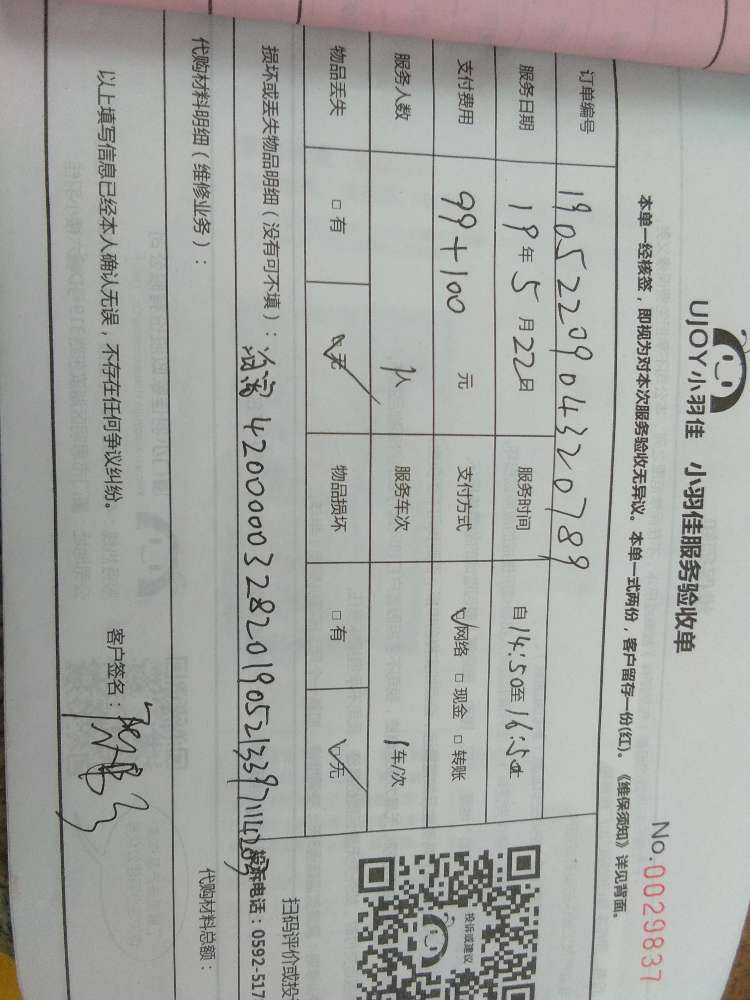 UJOY小羽佳 小羽佳服务验收单
No.0029837
本单一经核签，即视为对本次服务验收无异议。本单一式两份，客户留存一份(红)。《维保须知》详见背面。
订单编号 1905220904320789
服务日期 19年5月22日 服务时间 自14:50至16:50
支付费用 99+100 元 支付方式 ☑网络 □现金 □转账
服务人数 服务车次 1车/次
物品丢失 □有 ☑无 物品损坏 □有 ☑无
损坏或丢失物品明细（没有可不填）：
代购材料明细（维修业务）：
代购材料总额：
以上填写信息已经本人确认无误，不存在任何争议纠纷。 客户签名：
投诉或建议
扫码评价或投
投诉电话：0592-517